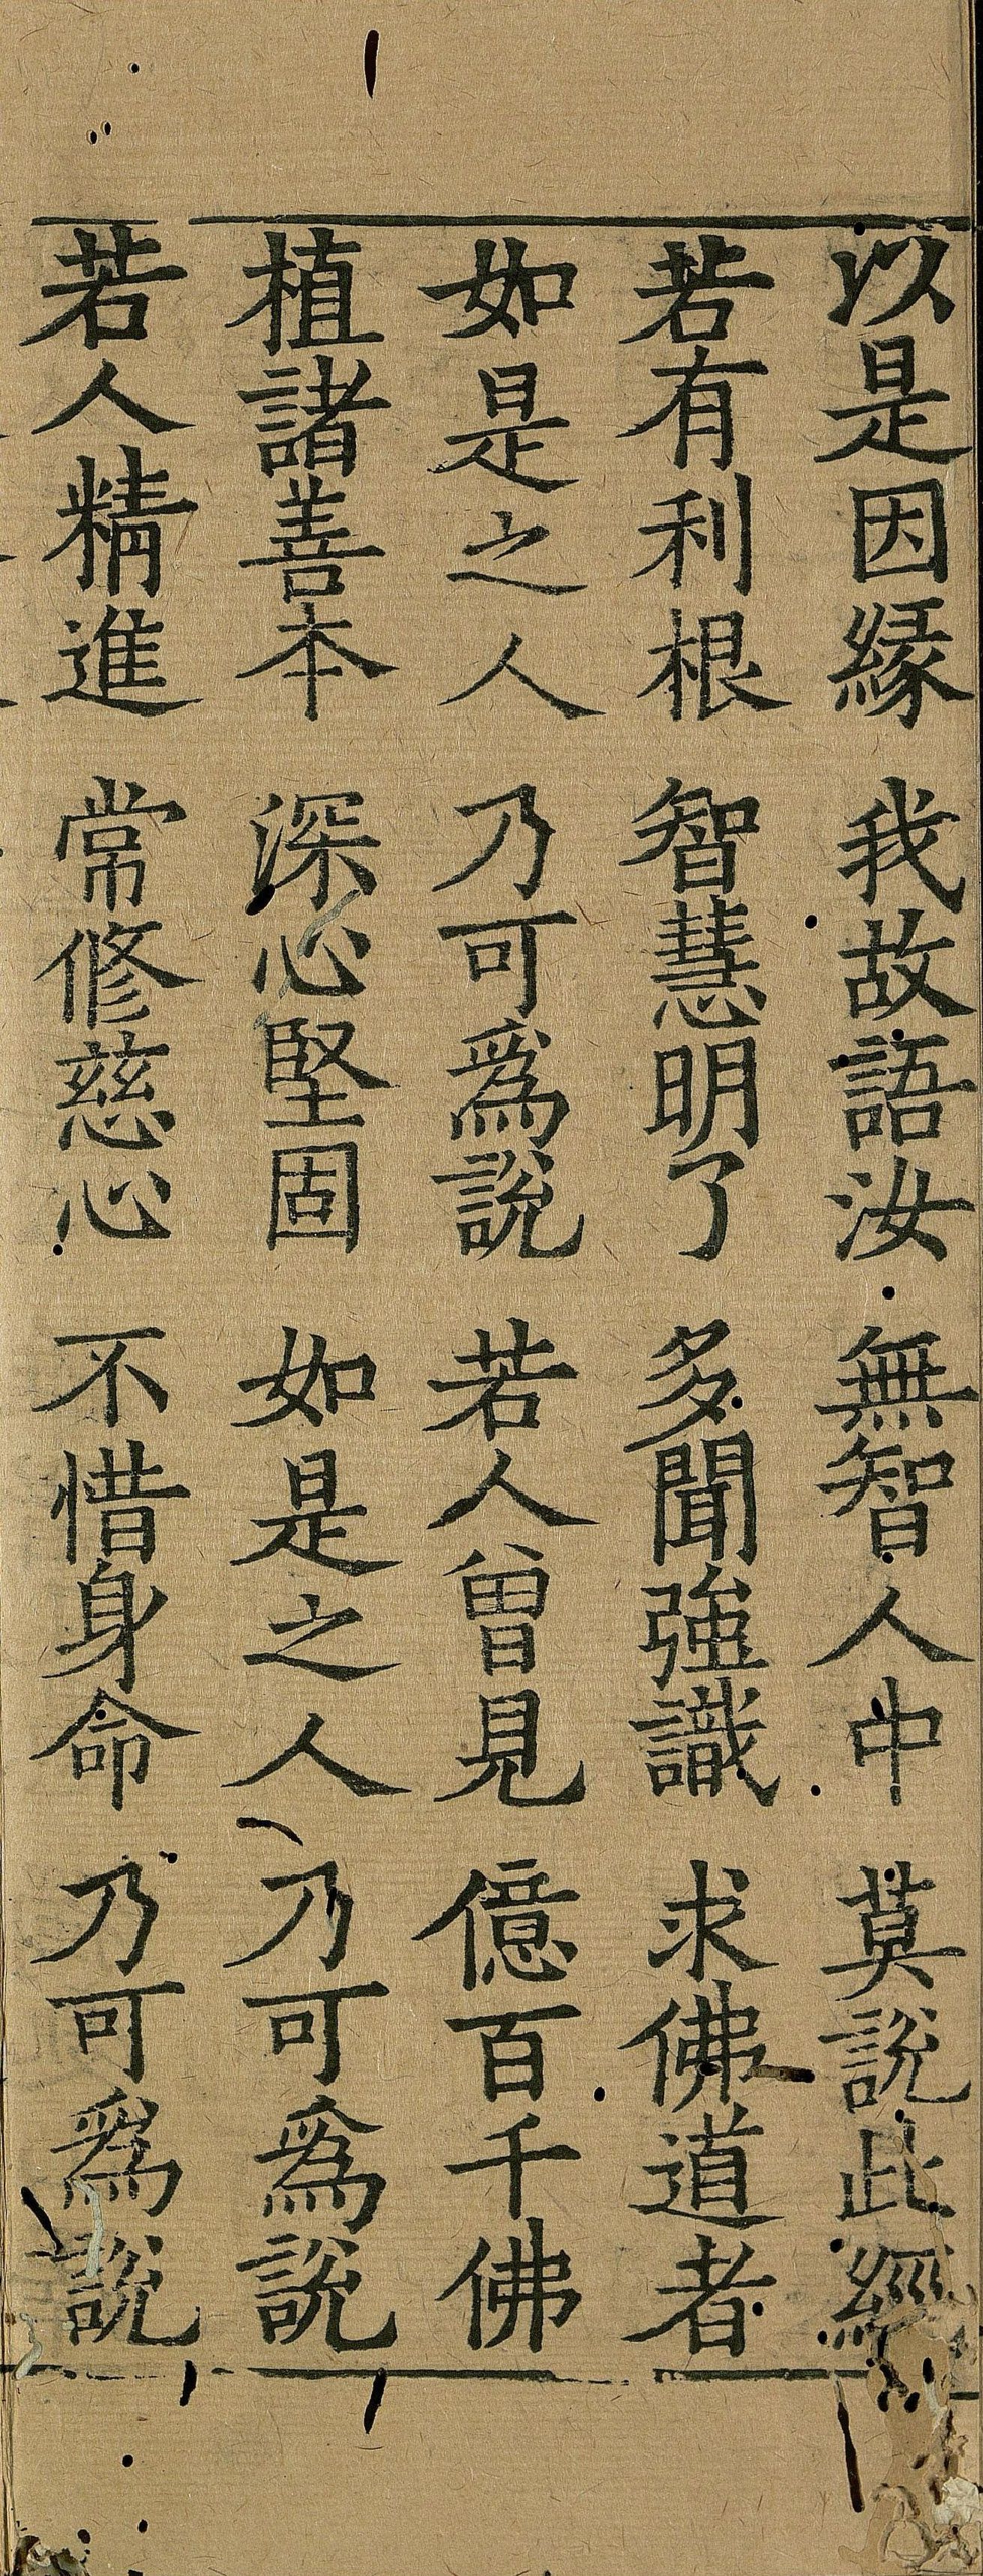 以是因緣 我故語汝 無智人中 莫說此經
若有利根 智慧明了 多聞強識 求佛道者
如是之人 乃可爲說 若人曾見 億百千佛
植諸善本 深心堅固 如是之人 乃可爲說
若人精進 常修慈心 不惜身命 乃可爲說